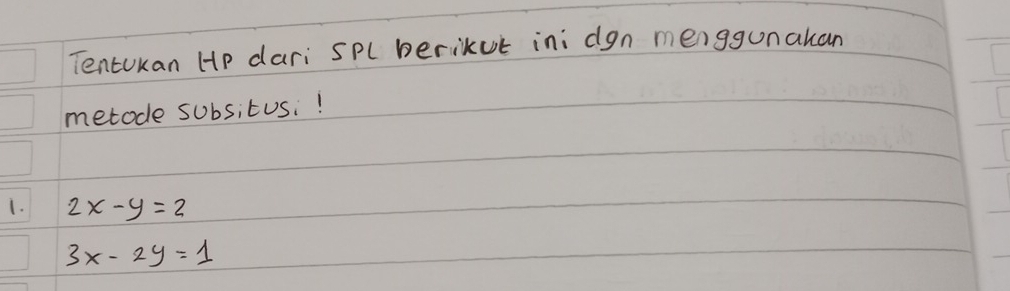 Tentukan HP dari SPL berikut ini dgn menggunakan
metode subsitusi !
1. 2x - y = 2
3x - 2y = 1